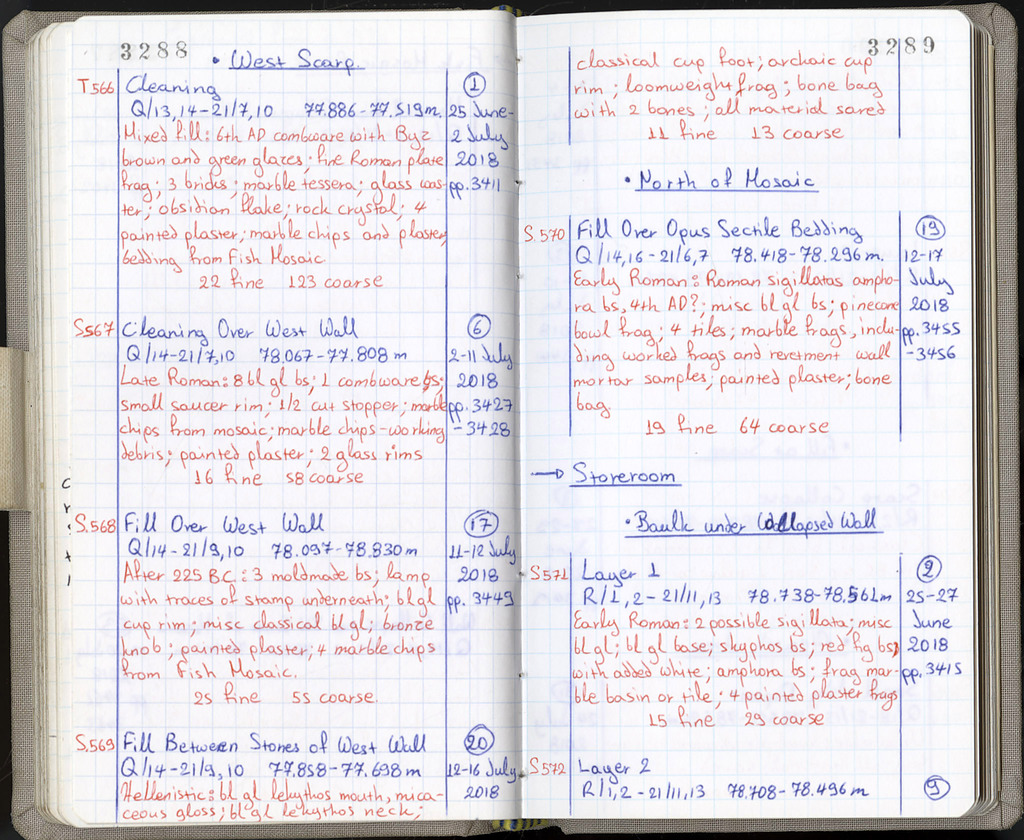 3288
• West Scarp.
T566 Cleaning ①
Q/13,14-21/7,10 77.886-77.519m. 25 June-
Mixed fill: 6th AD combware with Byz 2 July
brown and green glazes; fine Roman plate 2018
frag; 3 bricks; marble tessera; glass was- pp. 3411
ter; obsidian flake; rock crystal; 4
painted plaster; marble chips and plaster
bedding from Fish Mosaic.
22 fine 123 coarse
S.567 Cleaning Over West Wall ⑥
Q/14-21/7,10 78.067-77.808 m 2-11 July
Late Roman: 8 bl gl bs; 1 combware bs; 2018
small saucer rim; 1/2 cut stopper; marble pp. 3427
chips from mosaic; marble chips-working -3428
debris; painted plaster; 2 glass rims
16 fine 58 coarse
S.568 Fill Over West Wall ⑰
Q/14-21/9,10 78.097-78.830m 11-12 July
After 225 BC: 3 moldmade bs; lamp 2018
with traces of stamp underneath; bl gl pp. 3449
cup rim; misc classical bl gl; bronze
knob; painted plaster; 4 marble chips
from Fish Mosaic.
25 fine 55 coarse.
S.569 Fill Between Stones of West Wall ⑳
Q/14-21/9,10 77.858-77.698m 12-16 July
Hellenistic: bl gl lekythos mouth, mica- 2018
ceous gloss; bl gl lekythos neck;
3289
classical cup foot; archaic cup
rim; loomweight frag; bone bag
with 2 bones; all material saved
11 fine 13 coarse
• North of Mosaic
S.570 Fill Over Opus Sectile Bedding ⑲
Q/14,16-21/6,7 78.418-78.296 m. 12-17
Early Roman: Roman sigillatas ampho- July
ra bs, 4th AD?; misc bl gl bs; pinecone 2018
bowl frag; 4 tiles; marble frags, inclu- pp. 3455
ding worked frags and revetment wall -3456
mortar samples; painted plaster; bone
bag
19 fine 64 coarse
→ Storeroom
• Baulk under Collapsed Wall
S571 Layer 1 ②
R/1,2-21/11,13 78.738-78.561m 25-27
Early Roman: 2 possible sigillata; misc June
bl gl; bl gl base; skyphos bs; red fig bs, 2018
with added white; amphora bs; frag mar- pp. 3415
ble basin or tile; 4 painted plaster frags
15 fine 29 coarse
S572 Layer 2
R/1,2-21/11,13 78.708-78.496m ⑨